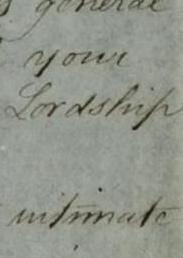 general
your
Lordship
intimate